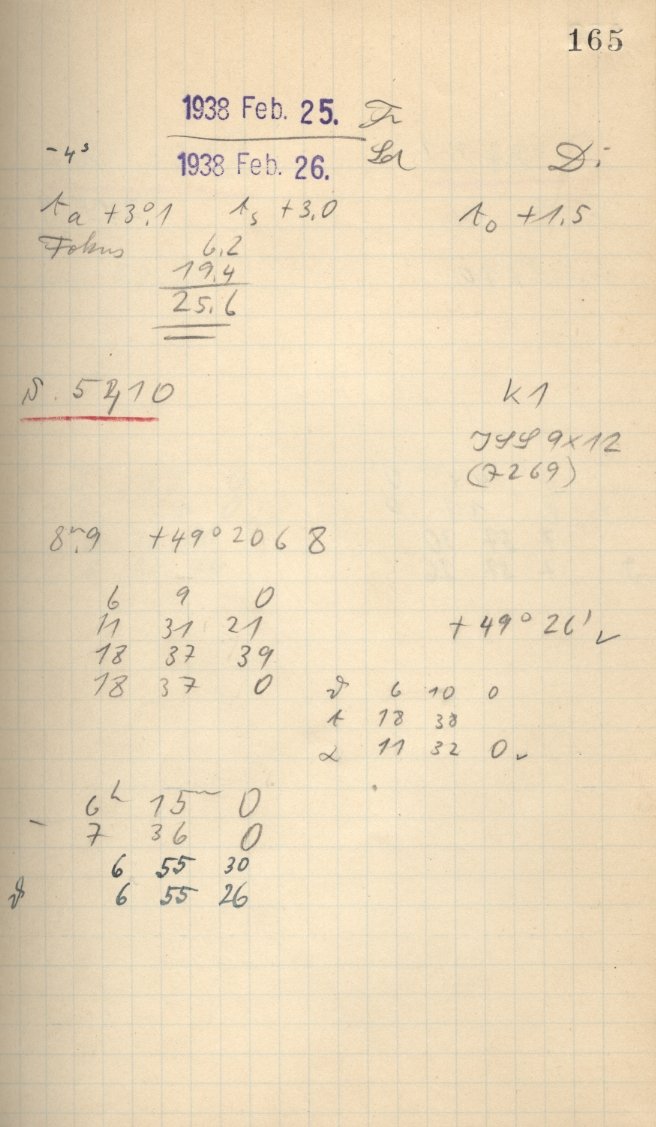 165
1938 Feb. 25. Fr
-4ˢ
1938 Feb. 26. Sa Di
tₐ +3°,1 tₛ +3,0 t₀ +1,5
Fokus 6,2
19,4
25,6
K1
(7269)
8ᵐ,9 +49° 20 6 8
6 9 0
11 31 21
+49° 26' ✓
18 37 39
18 37 0
ϑ 6 10 0
t 18 38
α 11 32 0 ✓
6ʰ 15ᵐ 0
- 7 36 0
6 55 30
ϑ 6 55 26